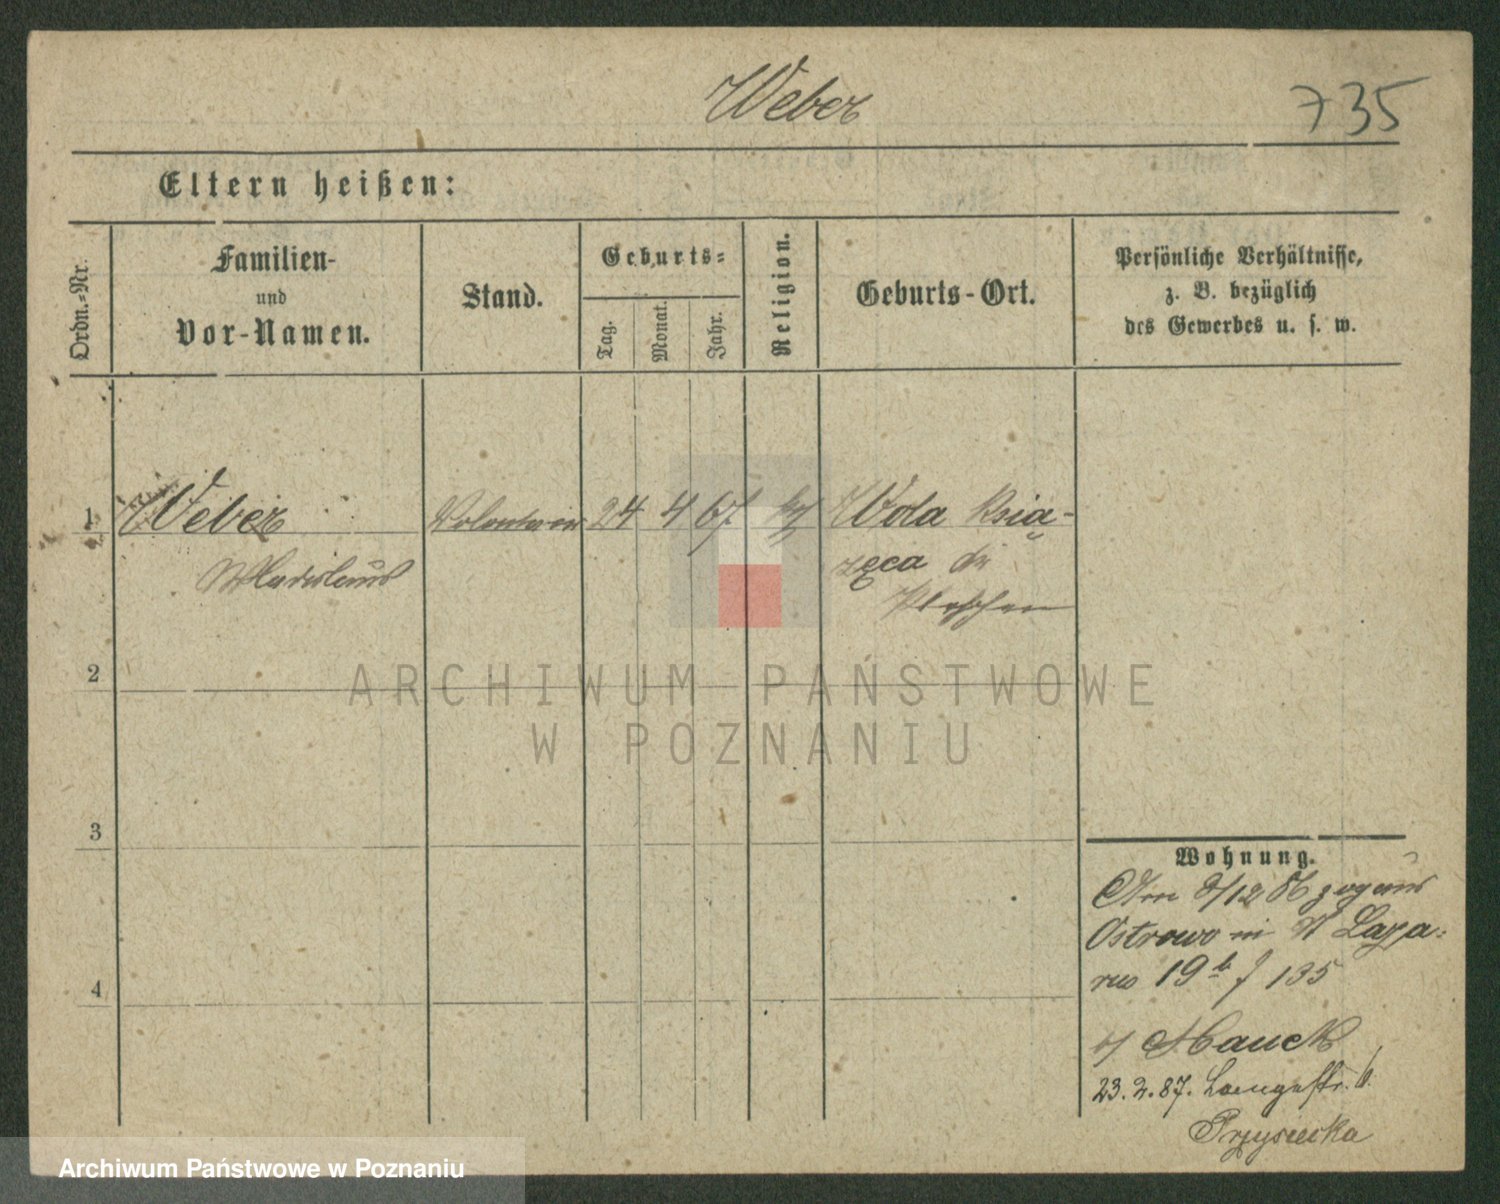 Weber
735
Eltern heißen:
Ordn.-Nr.
Familien-
und
Vor-Namen.
Stand.
Geburts-
Tag.
Monat.
Jahr.
Religion.
Geburts-Ort.
Persönliche Verhältnisse,
z. B. bezüglich
des Gewerbes u. s. w.
1 Weber Volontair 24 4 67 Wola Ksią-
Wladislaus żęca
Pleschen
2
ARCHIWUM PAŃSTWOWE
W POZNANIU
3
4
Wohnung.
Am 9/12 86 zog aus
Ostrowo in St Laza-
rus 19 b J 135
b/ Hauck
23.2.87. Langestr. 6.
Przysiecka
Archiwum Państwowe w Poznaniu